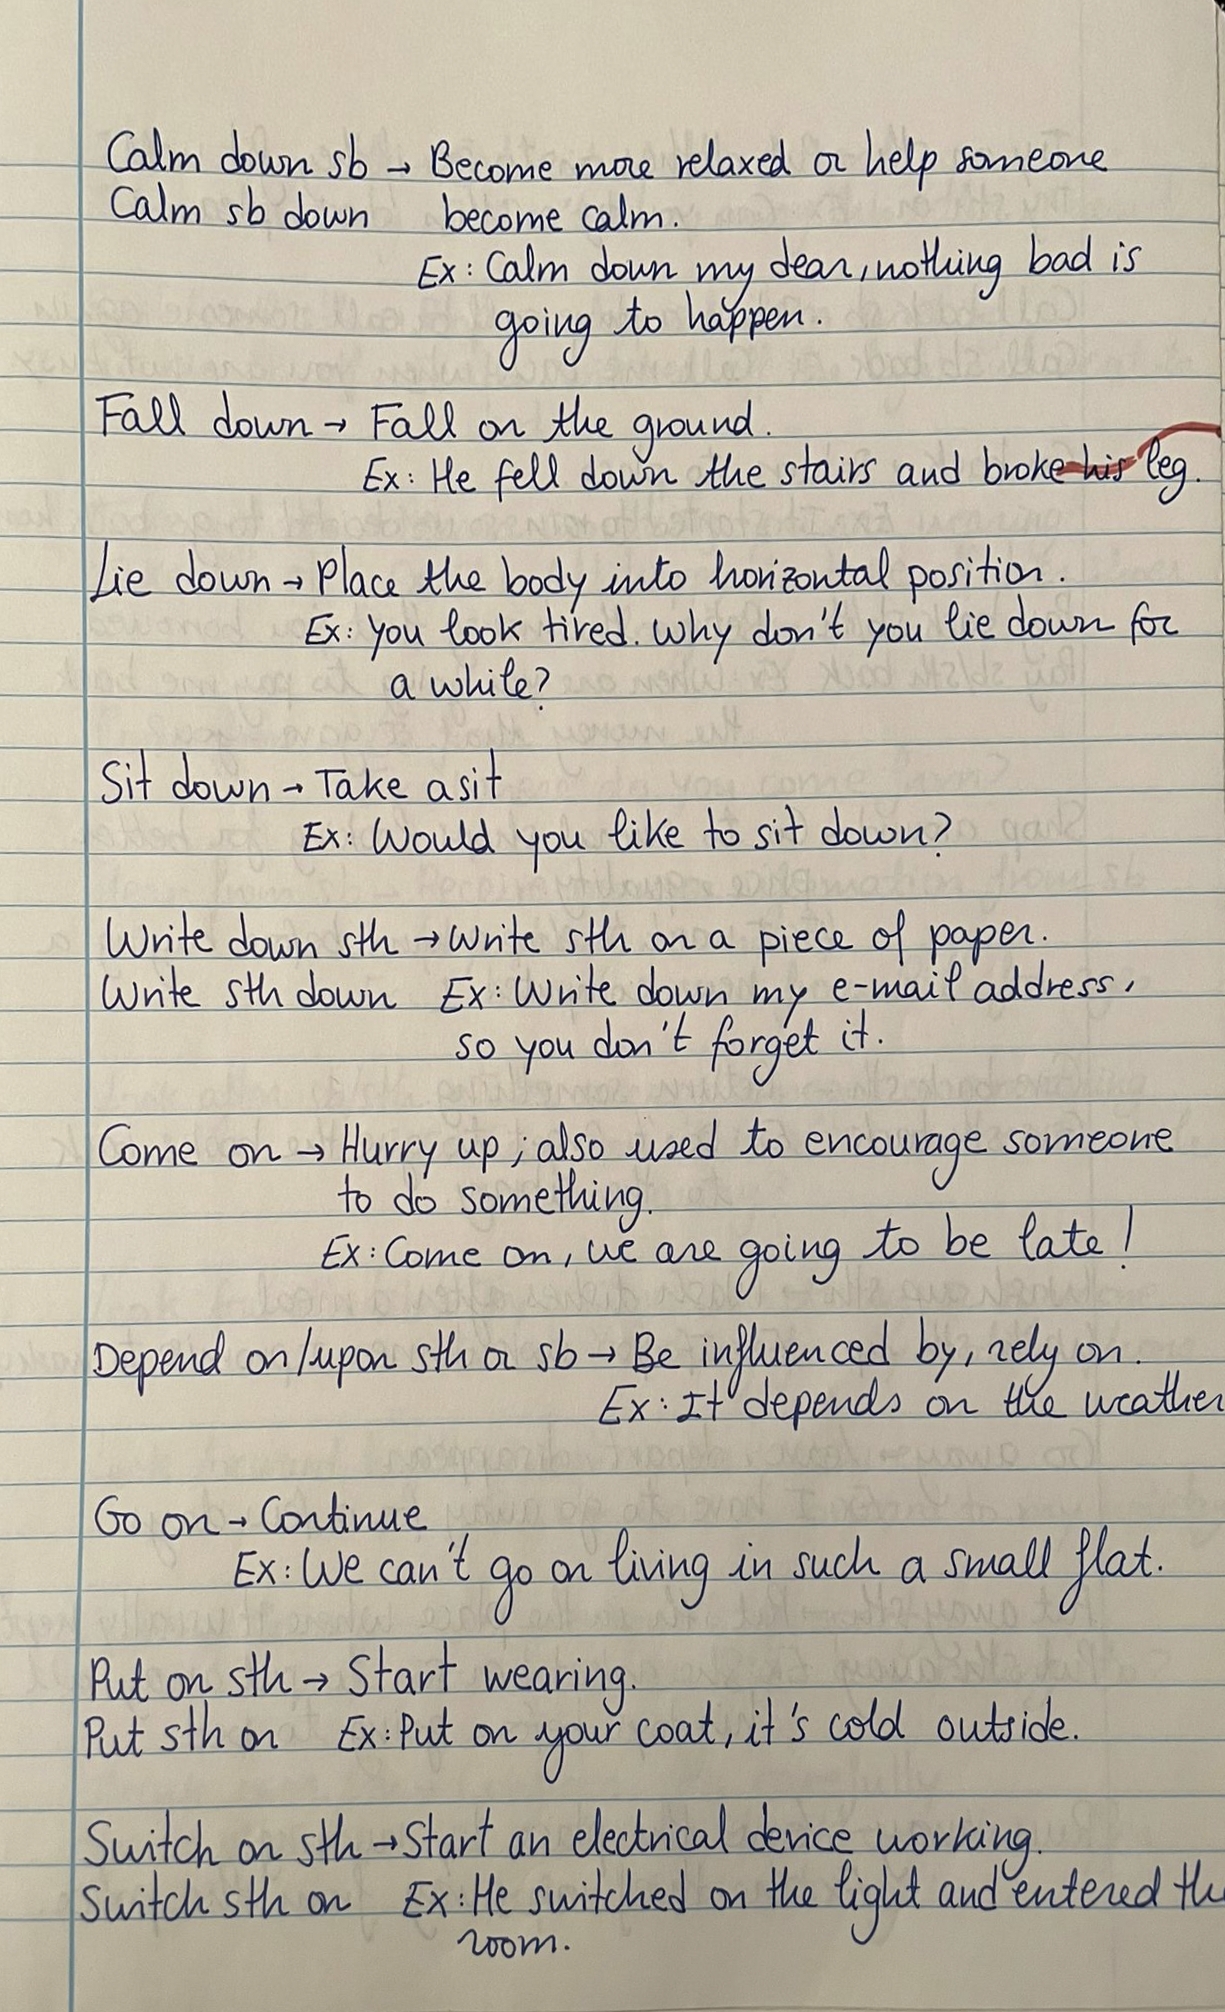 Calm down sb → Become more relaxed or help someone
Calm sb down become calm.
Ex: Calm down my dear, nothing bad is
going to happen.
Fall down → Fall on the ground.
Ex: He fell down the stairs and broke his leg.
Lie down → Place the body into horizontal position.
Ex: You look tired. Why don't you lie down for
a while?
Sit down → Take a sit
Ex: Would you like to sit down?
Write down sth → Write sth on a piece of paper.
Write sth down Ex: Write down my e-mail address,
so you don't forget it.
Come on → Hurry up; also used to encourage someone
to do something.
Ex: Come on, we are going to be late!
Depend on/upon sth or sb → Be influenced by, rely on.
Ex: It depends on the weather
Go on → Continue
Ex: We can't go on living in such a small flat.
Put on sth → Start wearing.
Put sth on Ex: Put on your coat, it's cold outside.
Switch on sth → Start an electrical device working.
Switch sth on Ex: He switched on the light and entered the
room.